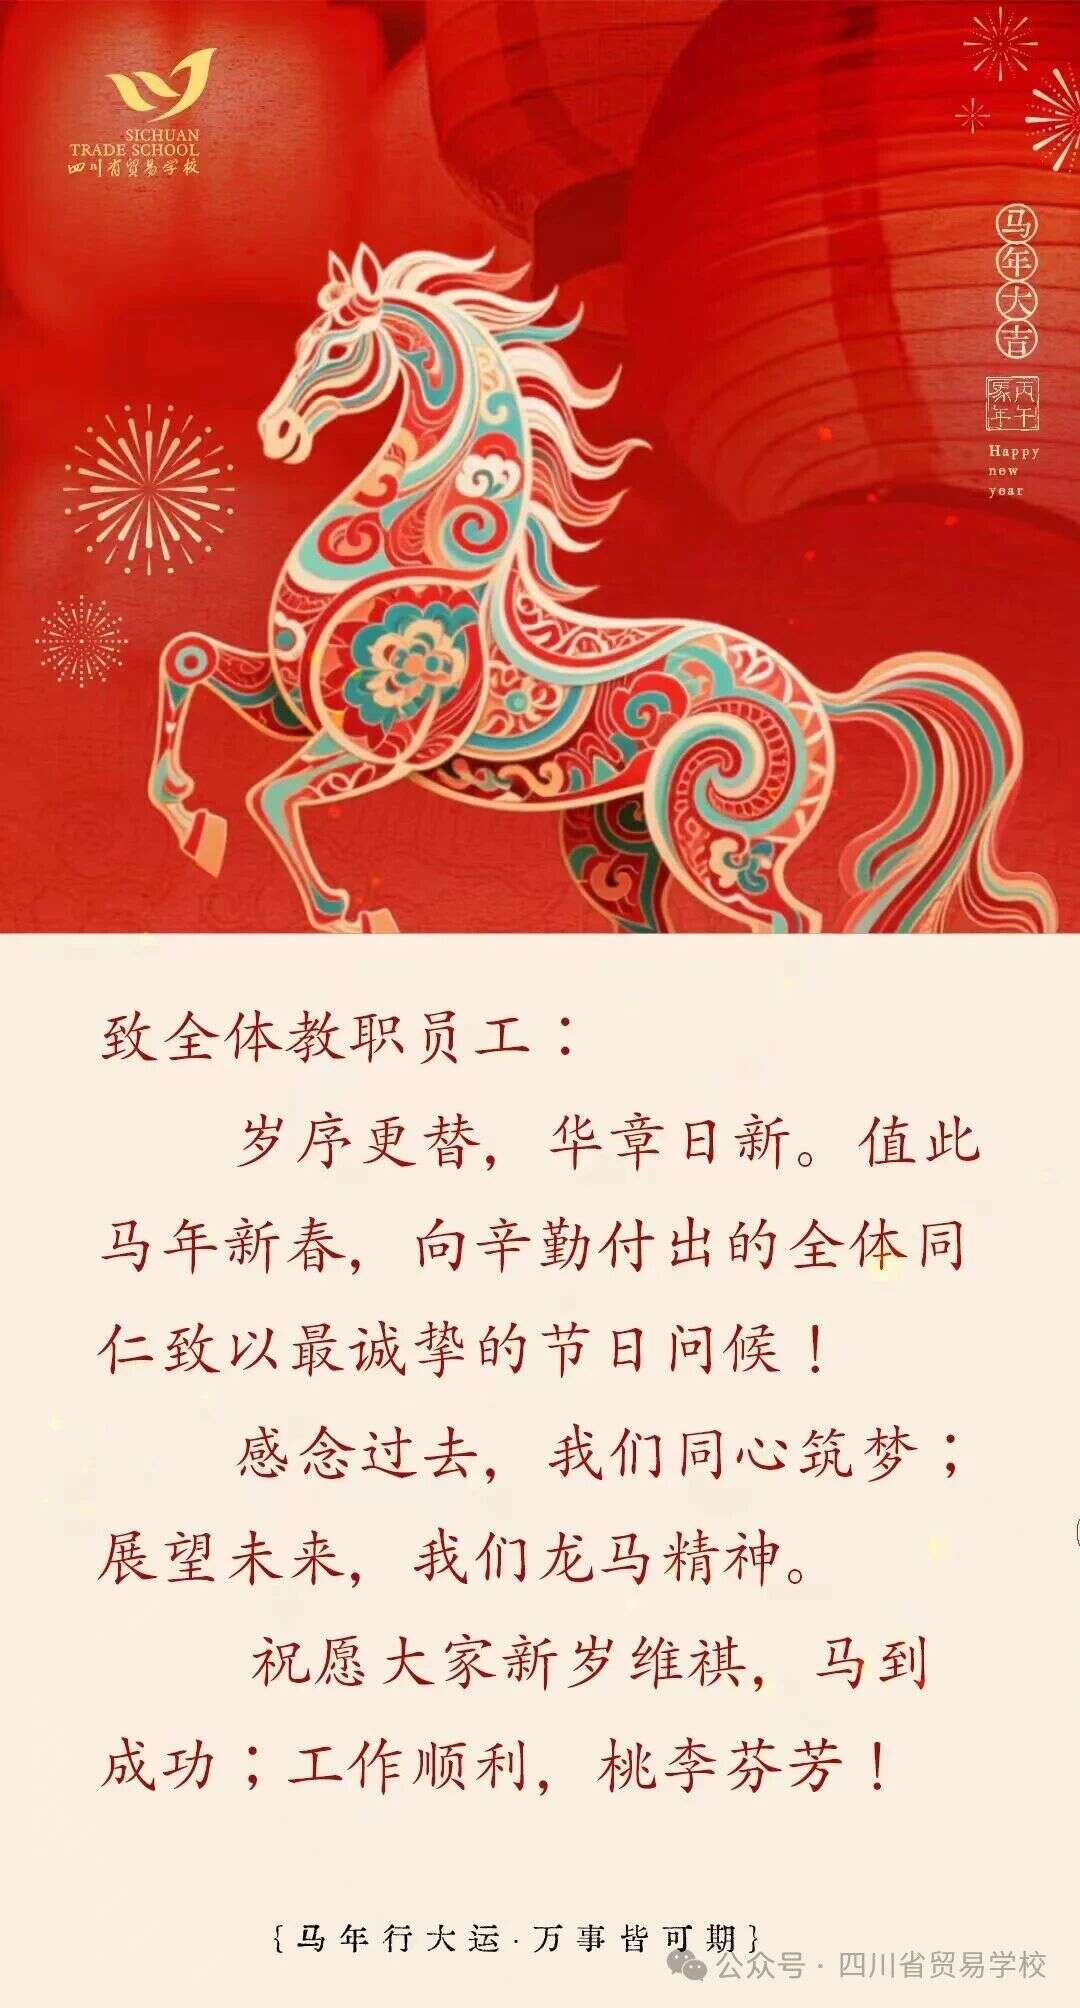 SICHUAN
TRADE SCHOOL
四川省贸易学校
马年大吉
丙午
年
Happy
new
year
致全体教职员工：
岁序更替，华章日新。值此
马年新春，向辛勤付出的全体同
仁致以最诚挚的节日问候！
感念过去，我们同心筑梦；
展望未来，我们龙马精神。
祝愿大家新岁维祺，马到
成功；工作顺利，桃李芬芳！
{马年行大运·万事皆可期}
公众号·四川省贸易学校